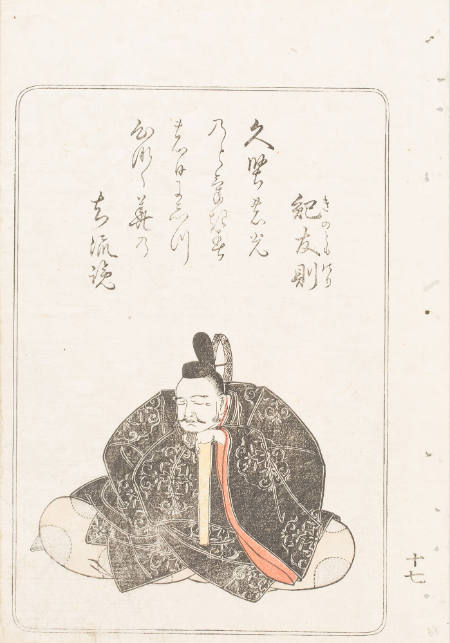 紀友則
きのとものり
久堅の光
のとけき春
の日にしつ
心なく華乃
ち流覧
十七